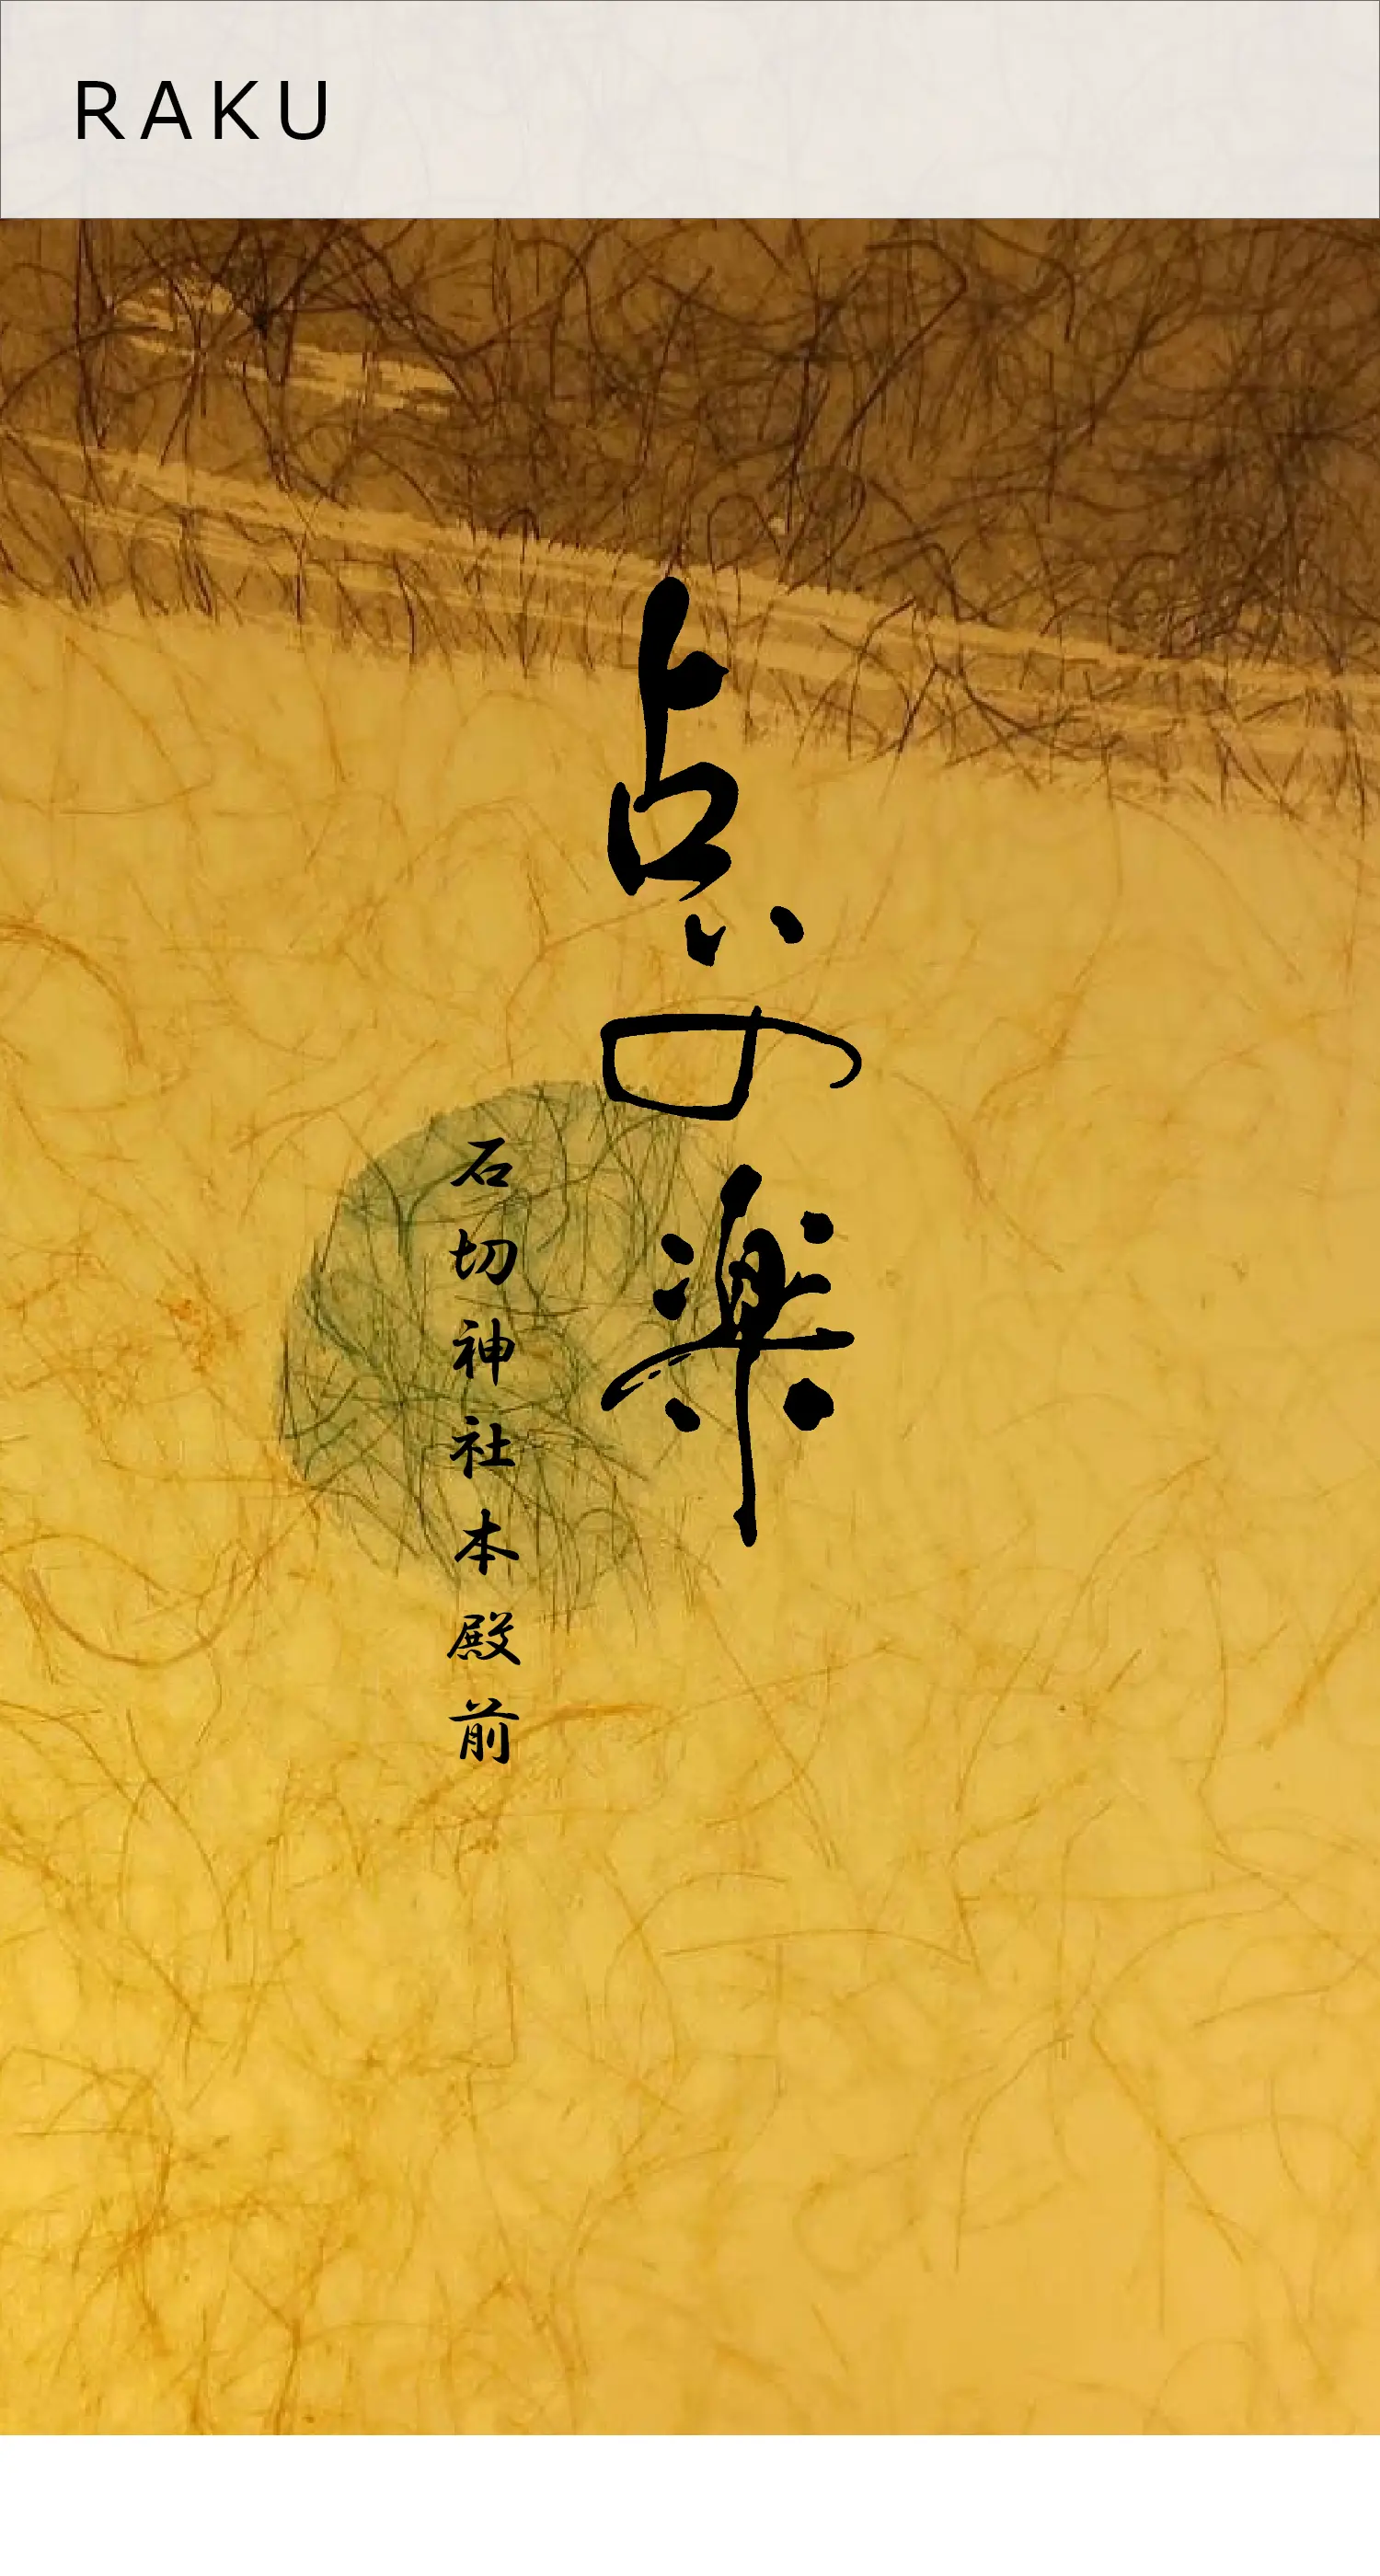 RAKU
占いの楽
石切神社本殿前